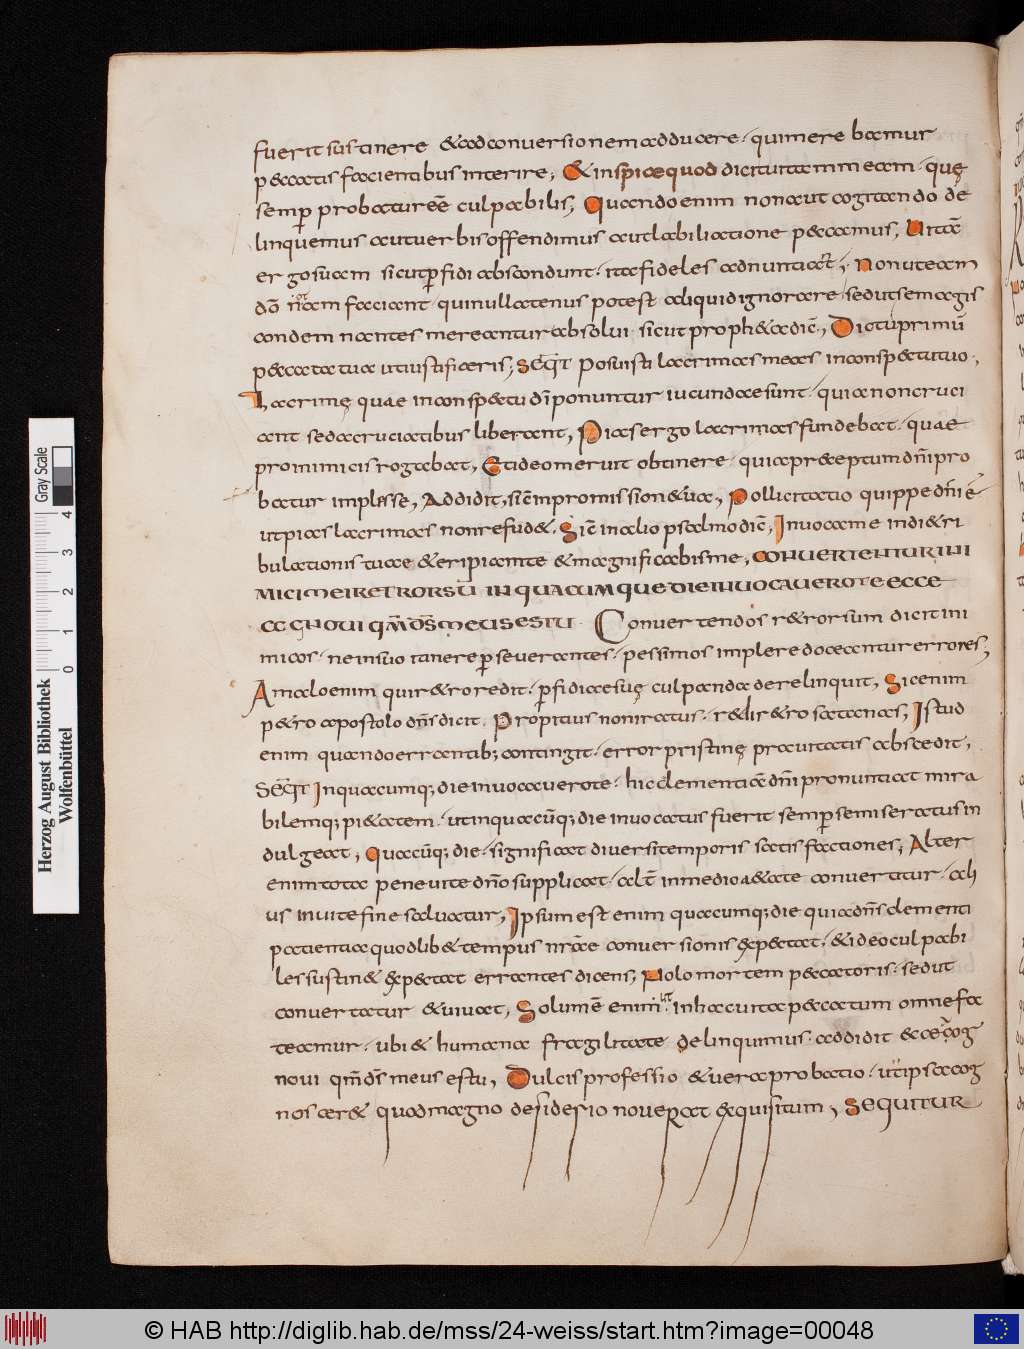 fuerit sustinere &ad conversionem adducere · qui merebamur
peccatis facientibus interire, & inspice quod dicit vitam meam · quę
semp̱ probatur eē culpabilis, Quando enim non aut cogitando de
linquemus aut verbis offendimus aut labili actione peccamus, Vitā
ergo suam sicut p̱fidi abscondunt · ita fideles adnuntiant · Non ut eam
dō notam faciant qui nullatenus potest aliquid ignorare · sed ut se magis
condemnantes mereantur absolui · sicut proph&a dic̄, Dic tu primū
peccata tua ut iustificeris, SEQIT Posuisti lacrimas meas in conspectu tuo,
Lacrimę quae in conspectu dī ponuntur iucundae sunt · quia non cruci
ant sed a cruciatibus liberant, Pias ergo lacrimas fundebat · quae
pro inimicis rogabat, Et ideo meruit obtinere · quia pr&eptum dn̄i pro
batur implesse, Addidit, sic̄ in promissione tua, Pollicitatio quippe dn̄i ē
ut pias lacrimas non refud& · Sic̄ in alio psalmo dic̄, Invoca me in die tri
bulationis tuae & eripiam te & magnificabis me, CONVERTENTUR INI
MICI MEI RETRORSŪ IN QUACUMQUE DIE INVOCAVERO TE ECCE
COGNOVI QM̄ DS̄ MEUS ES TU · Convertendos r&rorsum dicit ini
micos · ne in suo tenore p̱severantes · pessimos implere doceantur errores,
A malo enim qui r&ro redit · p̱fidiae suę culpanda derelinquit, Sic enim
p&ro apostolo dn̄s dicit · Propitius non iratus · redi r&ro satanas, Istud
enim quando errantib; contingit · error pristinę pravitatis abscedit,
SEQIT In quacumq; die invocavero te · hic clementiā dn̄i pronuntiat mira
bilemq; pi&atem · ut in quacūq; die invocatus fuerit semp̱ se miseratus in
dulgeat, Quacūq; die · significat diversi temporis satisfactiones, Alter
enim tota pene vita dn̄o supplicat · alt̄ in media a&ate convertitur · ali
us in vitae fine salvatur, Ipsum est enim quacumq; die quia dn̄s clementi
patientia quodlib& tempus nr̄ae conversionis exp&at · & ideo culpabi
les sustin& exp&at errantes dicens, Nolo mortem peccatoris · sed ut
convertatur & vivat, Solum ē enim ut in hac vita peccatum omne fa
teamur · ubi & humana fragilitate delinquimus · addidit ecce cog
novi qm̄ ds̄ meus es tu, Dulcis professio & vera probatio · ut ipsa cog
noscer& quod magno desiderio noverat exquisitum, SEQUITUR
Herzog August Bibliothek
Wolfenbüttel
0 1 2 3 4
Gray Scale
© HAB http://diglib.hab.de/mss/24-weiss/start.htm?image=00048